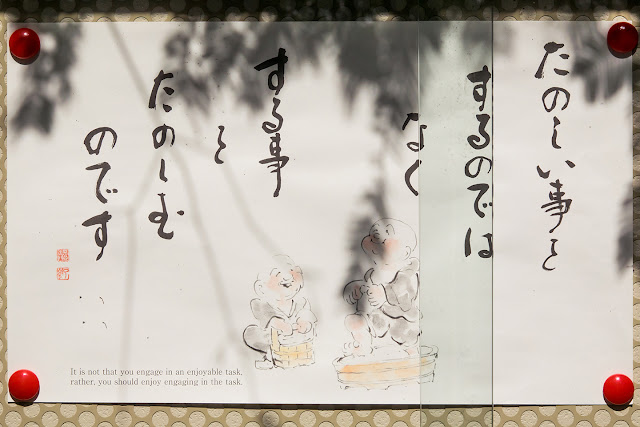 たのしい事を
するのでは
なく
する事
を
たのしむ
のです
It is not that you engage in an enjoyable task,
rather, you should enjoy engaging in the task.